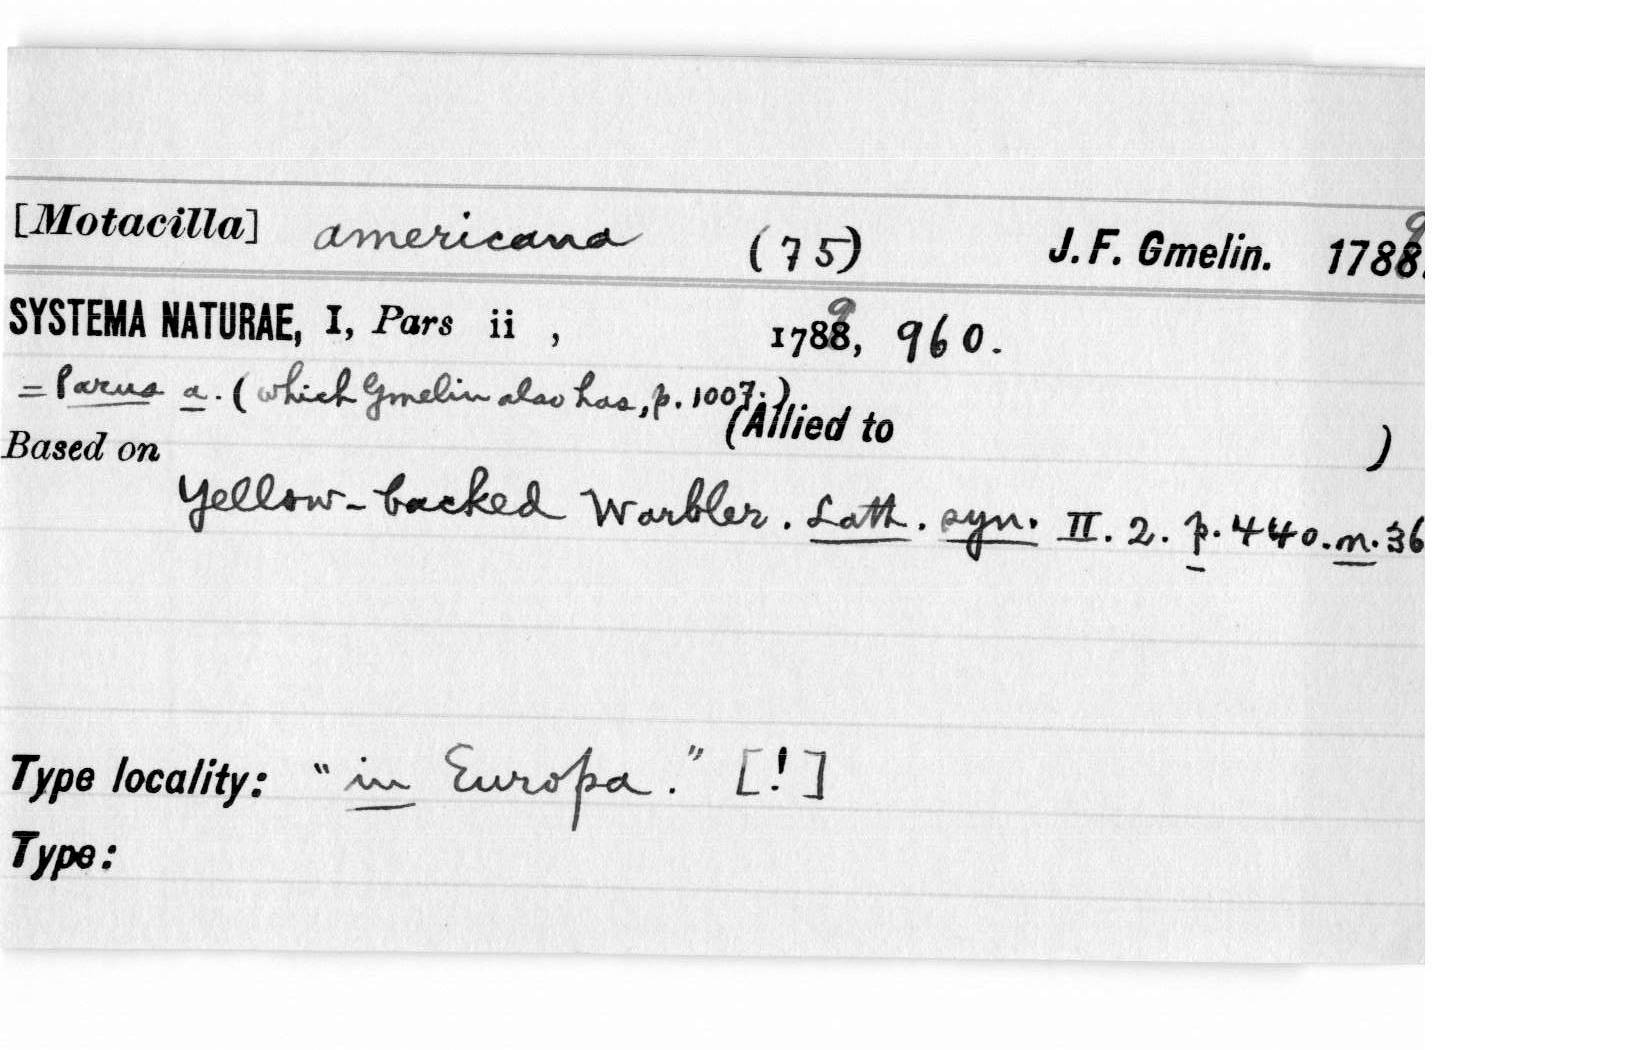 [Motacilla] americana (75) J. F. Gmelin. 1789.
SYSTEMA NATURAE, I, Pars ii , 1789, 960.
= Parus a. (which Gmelin also has, p. 1007.)
(Allied to )
Based on
Yellow-backed Warbler. Lath. syn. II. 2. p. 440. n. 36
Type locality: "in Europa." [!]
Type: